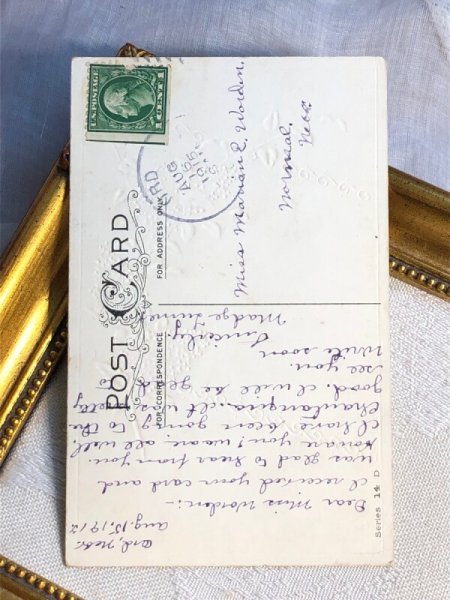 POST CARD
FOR CORRESPONDENCE
FOR ADDRESS ONLY
U.S. POSTAGE
1 CENT 1
ORD
AUG
Miss Marian E. Worden.
Normal.
Nebr.
Ord, Nebr.
Aug. 15, 1912
Dear Miss Worden:-
I received your card and
was glad to hear from you.
How are you? we are all well.
I have been going to the
Chautauqua. it was
good. I will be glad to
see you.
Write soon
Sincerely,
Madge
Series 14 D